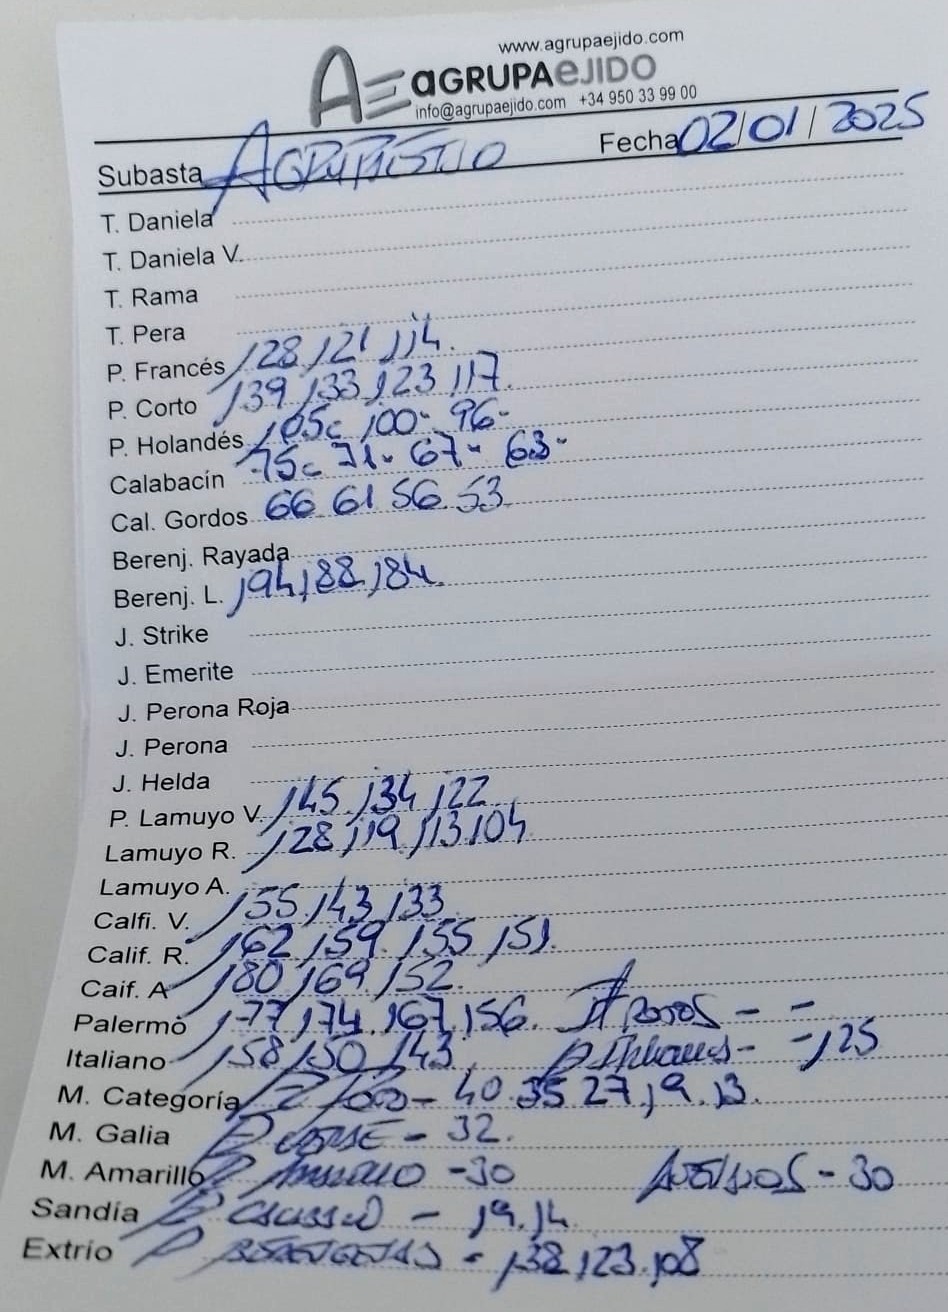 www.agrupaejido.com
AE aGRUPAeJIDO
info@agrupaejido.com +34 950 33 99 00
Subasta Fecha 02/01/2025
T. Daniela
T. Daniela V.
T. Rama
T. Pera
P. Francés 128 121 114.
P. Corto 139 133 123 117.
P. Holandés 105- 100- 96-
Calabacín 75- 71- 67- 63-
Cal. Gordos 66 61 56 53
Berenj. Rayada
Berenj. L. 194 188 184
J. Strike
J. Emerite
J. Perona Roja
J. Perona
J. Helda
P. Lamuyo V. 145. 134 122
Lamuyo R. 128 119 113.104
Lamuyo A.
Calfi. V. 155.143.133
Calif. R. 162 159. 155 151.
Caif. A 180 169.152.
Palermo 177 174.167.156. - -
Italiano 158 150 143. - -125
M. Categoría - 40.35 27,19.13.
M. Galia - 32.
M. Amarillo -30 - 30
Sandía - 19.14
Extrio - 138.123.108